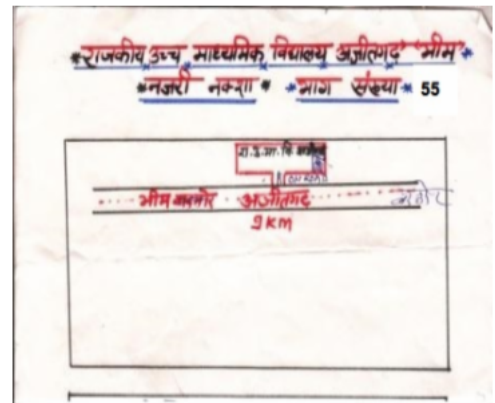 *राजकीय उच्च माध्यमिक विद्यालय अजीतगढ़ भीम*
*नजरी नक्शा* *भाग संख्या* 55
रा.उ.मा.वि
भीम अजीतगढ़
9 km